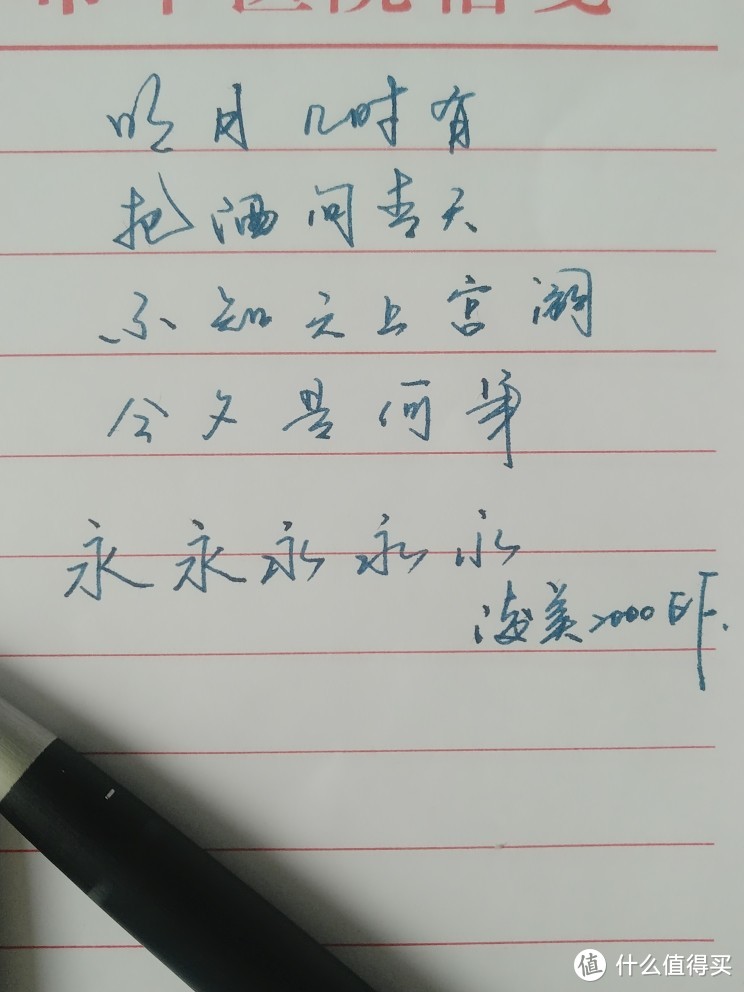 市中医院信笺
明月几时有
把酒问青天
不知天上宫阙
今夕是何年
永永永永永
凌美2000EF.
值 什么值得买